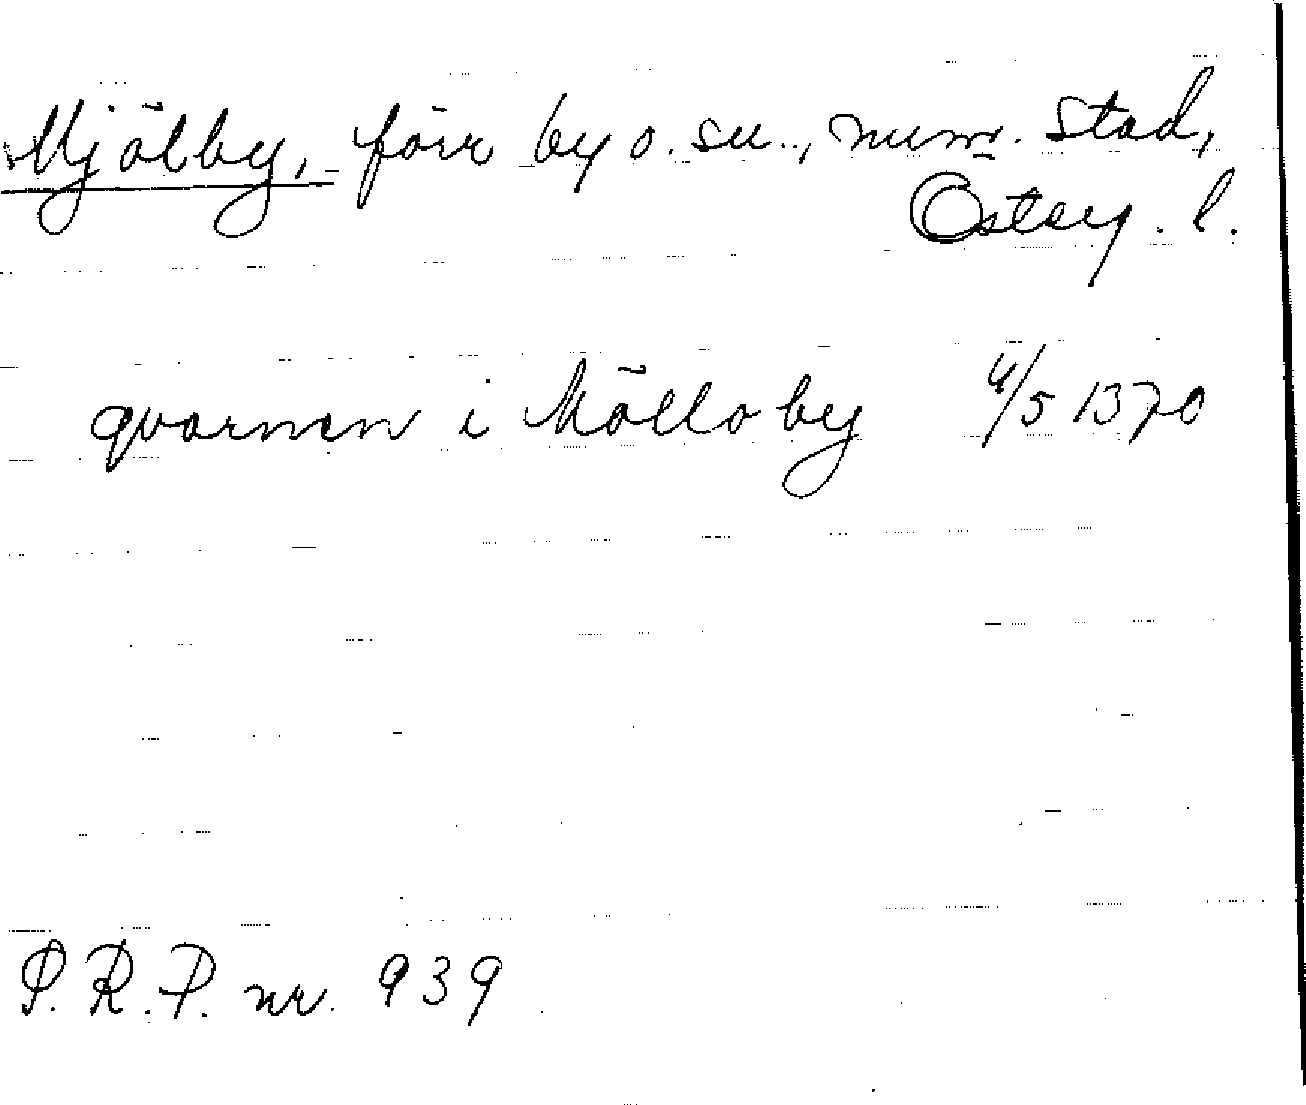 Mjölby, förr by o. sn., num. stad,
Österg. l.
qvarnen i Möllaby 4/5 1370
S.R.P. nr. 939